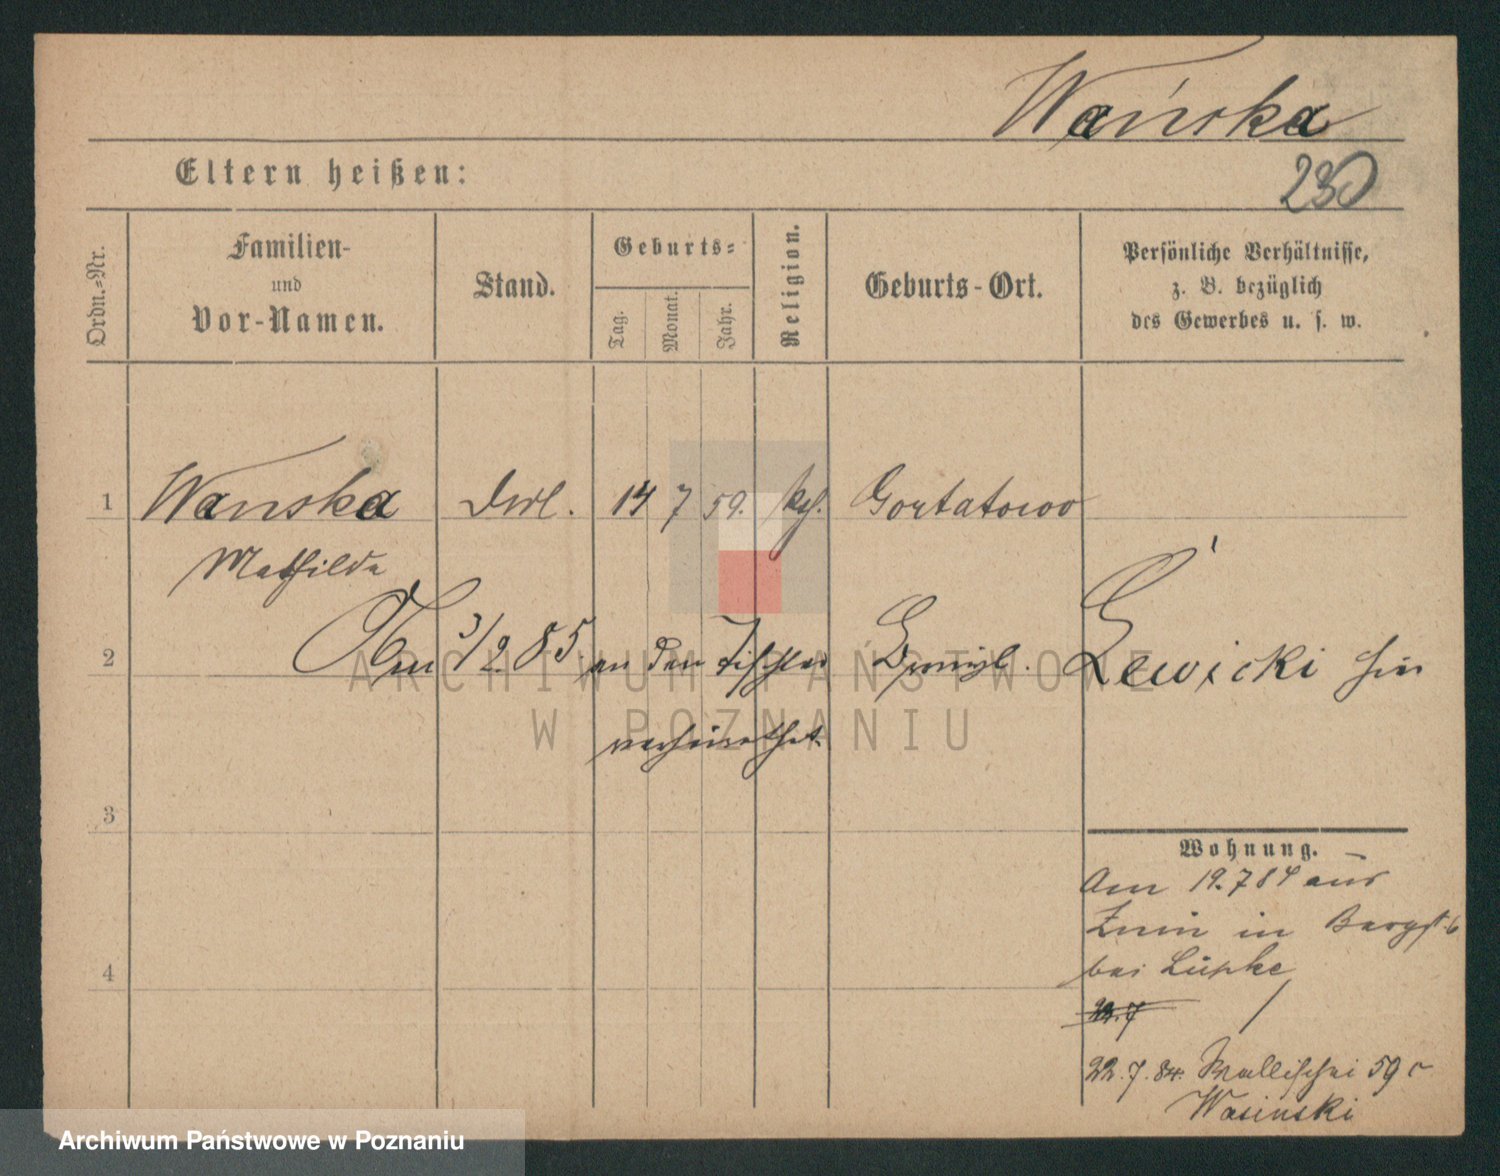 Wańska
230
Eltern heißen:
Ordn.-Nr.
Familien-
und
Vor-Namen.
Stand.
Geburts-
Tag.
Monat.
Jahr.
Religion.
Geburts-Ort.
Persönliche Verhältnisse,
z. B. bezüglich
des Gewerbes u. s. w.
1
Wanska
14 7 59. kth. Gortatowo
Mathilda
2
Am 3/2. 85. an den Tischler Lewicki hier
verheirathet.
3
Wohnung.
Am 19.7 84 aus
Znin in Bergstr. 6
bei Lüpke
4
22.7
22.7.84. Wallischei 59
Wasinski
ARCHIWUM PAŃSTWOWE
W POZNANIU
Archiwum Państwowe w Poznaniu